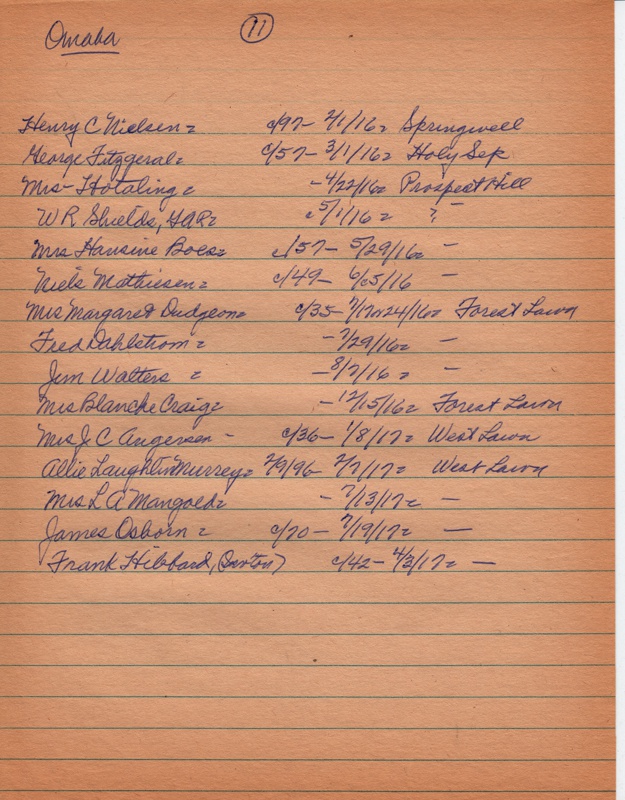 Omaha 11
Henry C Nielsen = c/97- 2/1/16= Springwell
George Fitzgeral= c/57- 3/1/16= Holy Sep
Mrs- Hotaling = -4/22/16= Prospect Hill
W R Shields, GAR= c5/1/16 = ?
Mrs Hansine Boes= c/57- 5/29/16= -
Niels Mathiesen= c/49- 6/c5/16 -
Mrs Margaret Dudgeon= c/35- 7/17or24/16= Forest Lawn
Fred Dahlstrom = - 7/29/16= -
Jim Walters = -8/7/16 = -
Mrs Blanche Craig= - 12/15/16= Forest Lawn
Mrs J. C Angersen - c/36- 1/8/17= West Lawn
Allie Laughlin Murrey= 2/9/96- 2/7/17= West Lawn
Mrs L A Mangold= - 2/13/17= -
James Osborn = c/70- 7/19/17= -
Frank Hibbard, (Benton) c/42- 4/3/17= -